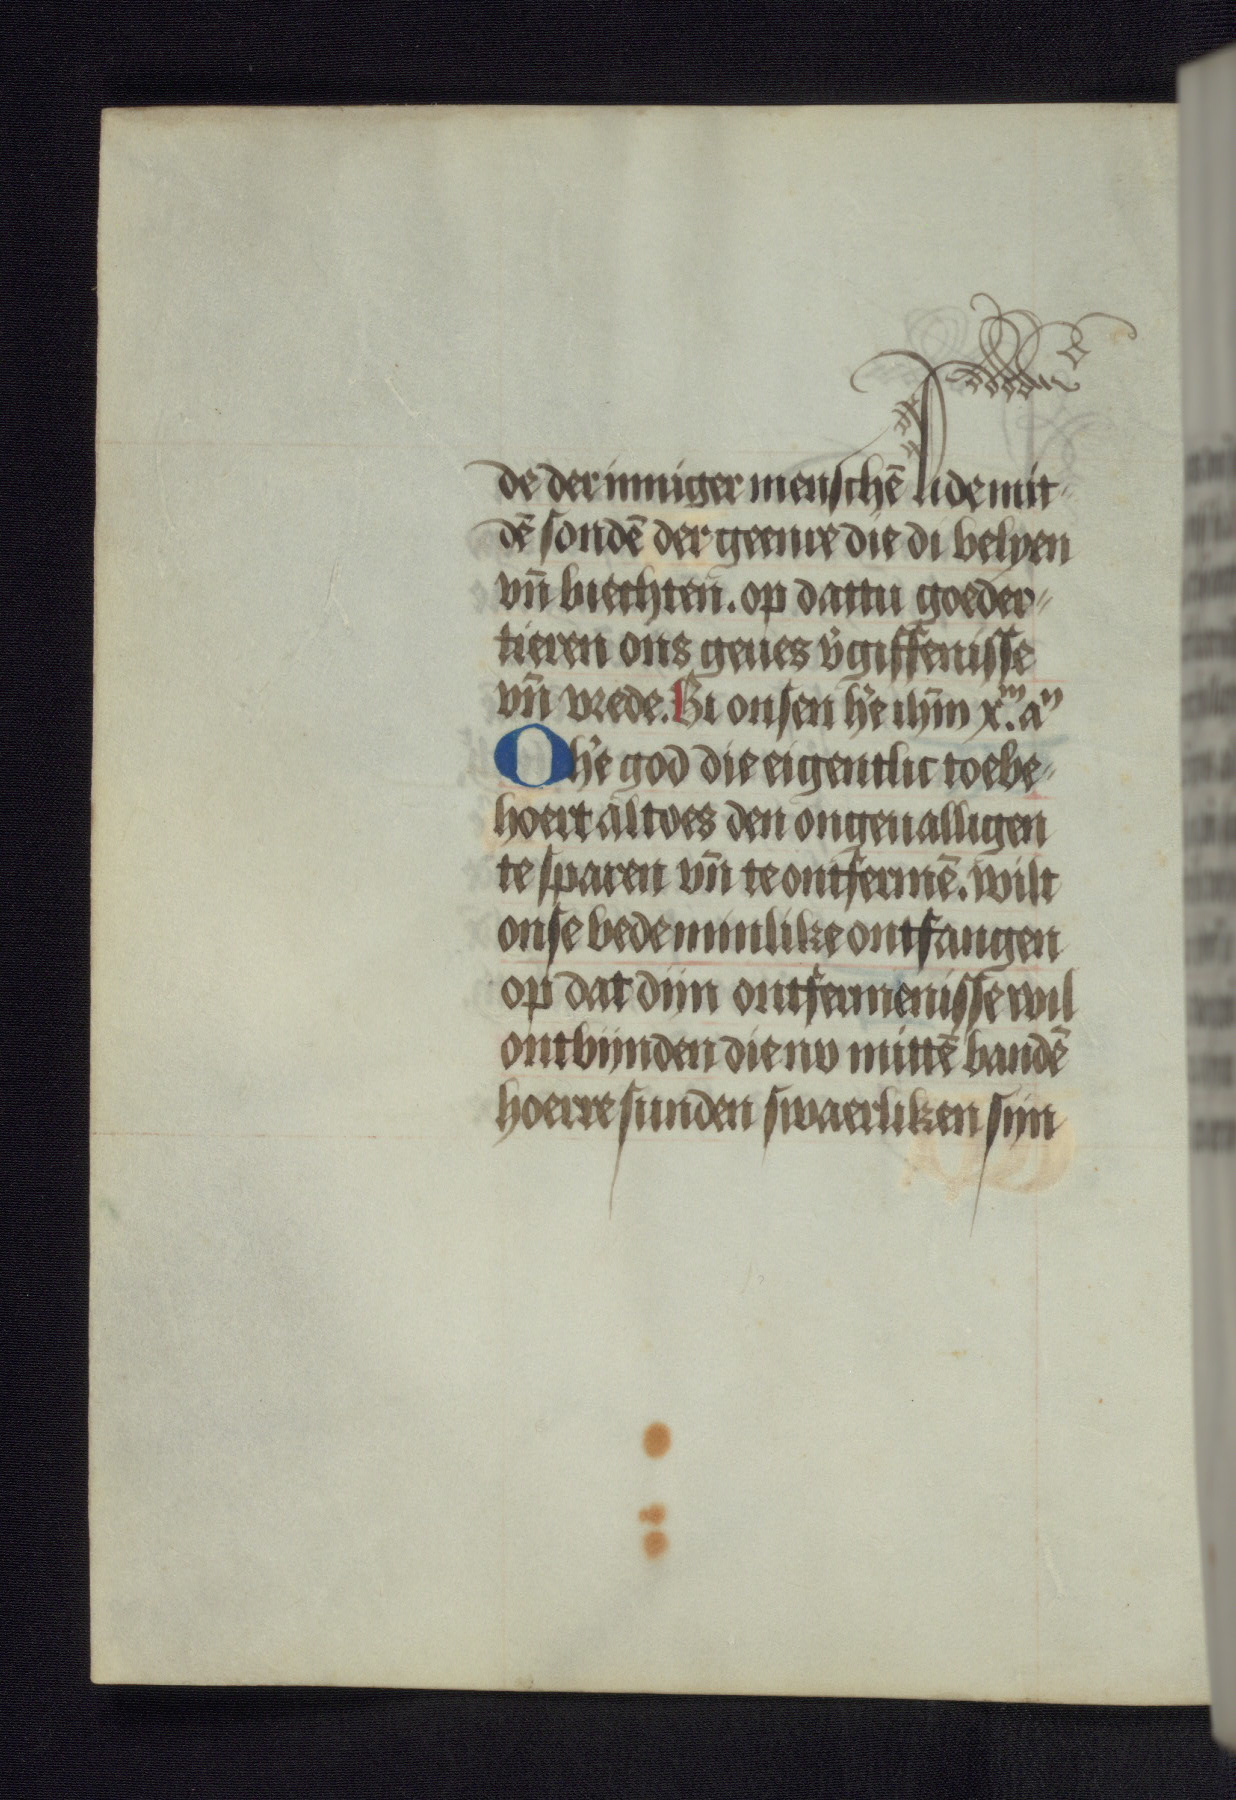 de der inniger menschē lide mit
dē sondē der geenre die di belyen
vn̄ biechten. op dattu goeder⸗
tieren ons geues v̓giffenisse
vn̄ vrede. Bi onsen h̓e ihm̄ xᵐ. aⁿ
O h̓e god die eigentlic toebe⸗
hoert altoes den ongeualligen
te sparen vn̄ te ontfermē. wilt
onse bede minlike ontfangen
op dat dijn ontfermenisse wil
ontbijnden die nv mittē bandē
hoerre sunden swaerliken sijn